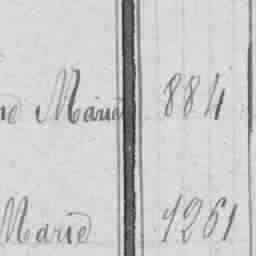 Marie 884
Marie 1261